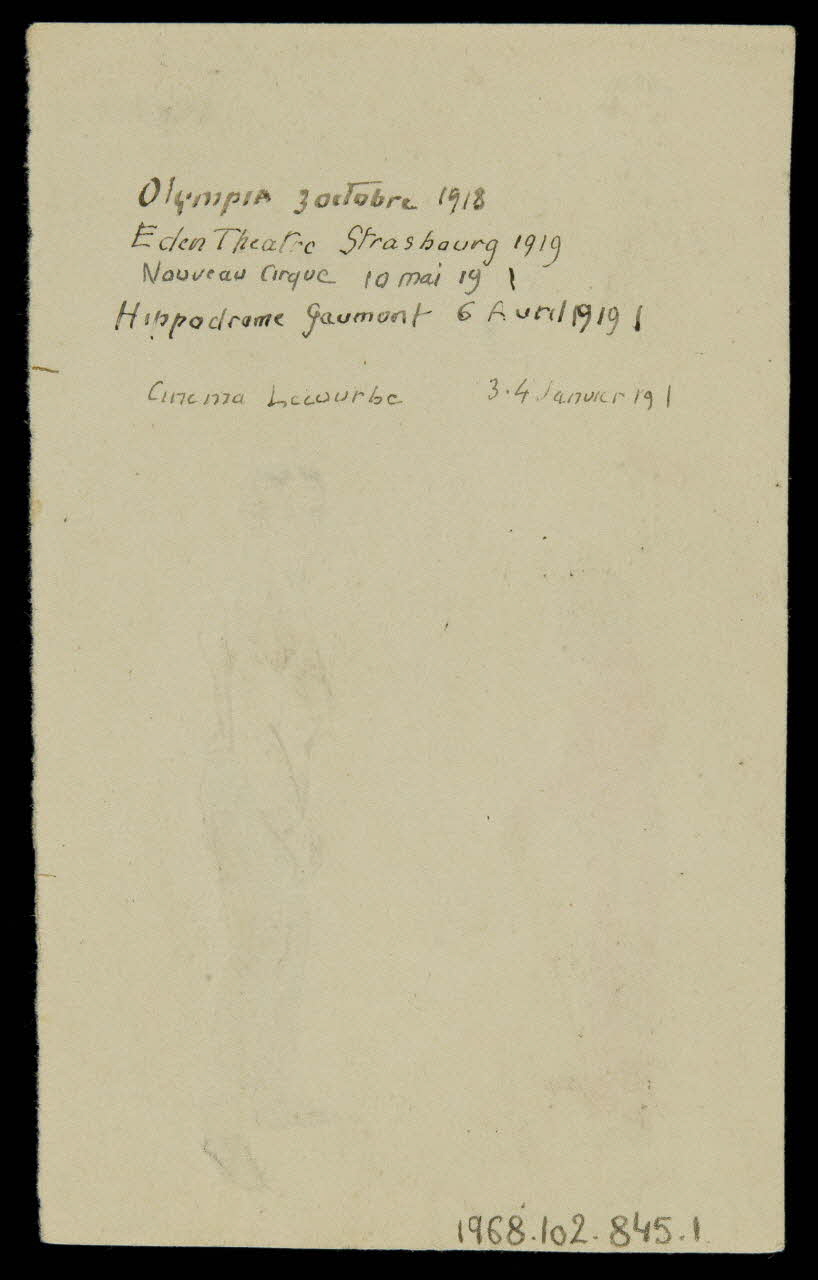 Olympia 3 octobre 1918
Eden Theatre Strasbourg 1919
Nouveau Cirque 10 mai 19 \
Hippodrome Gaumont 6 Avril 1919 |
Cinema Lecourbe 3.4 Janvier 19 |
1968.102.845.1